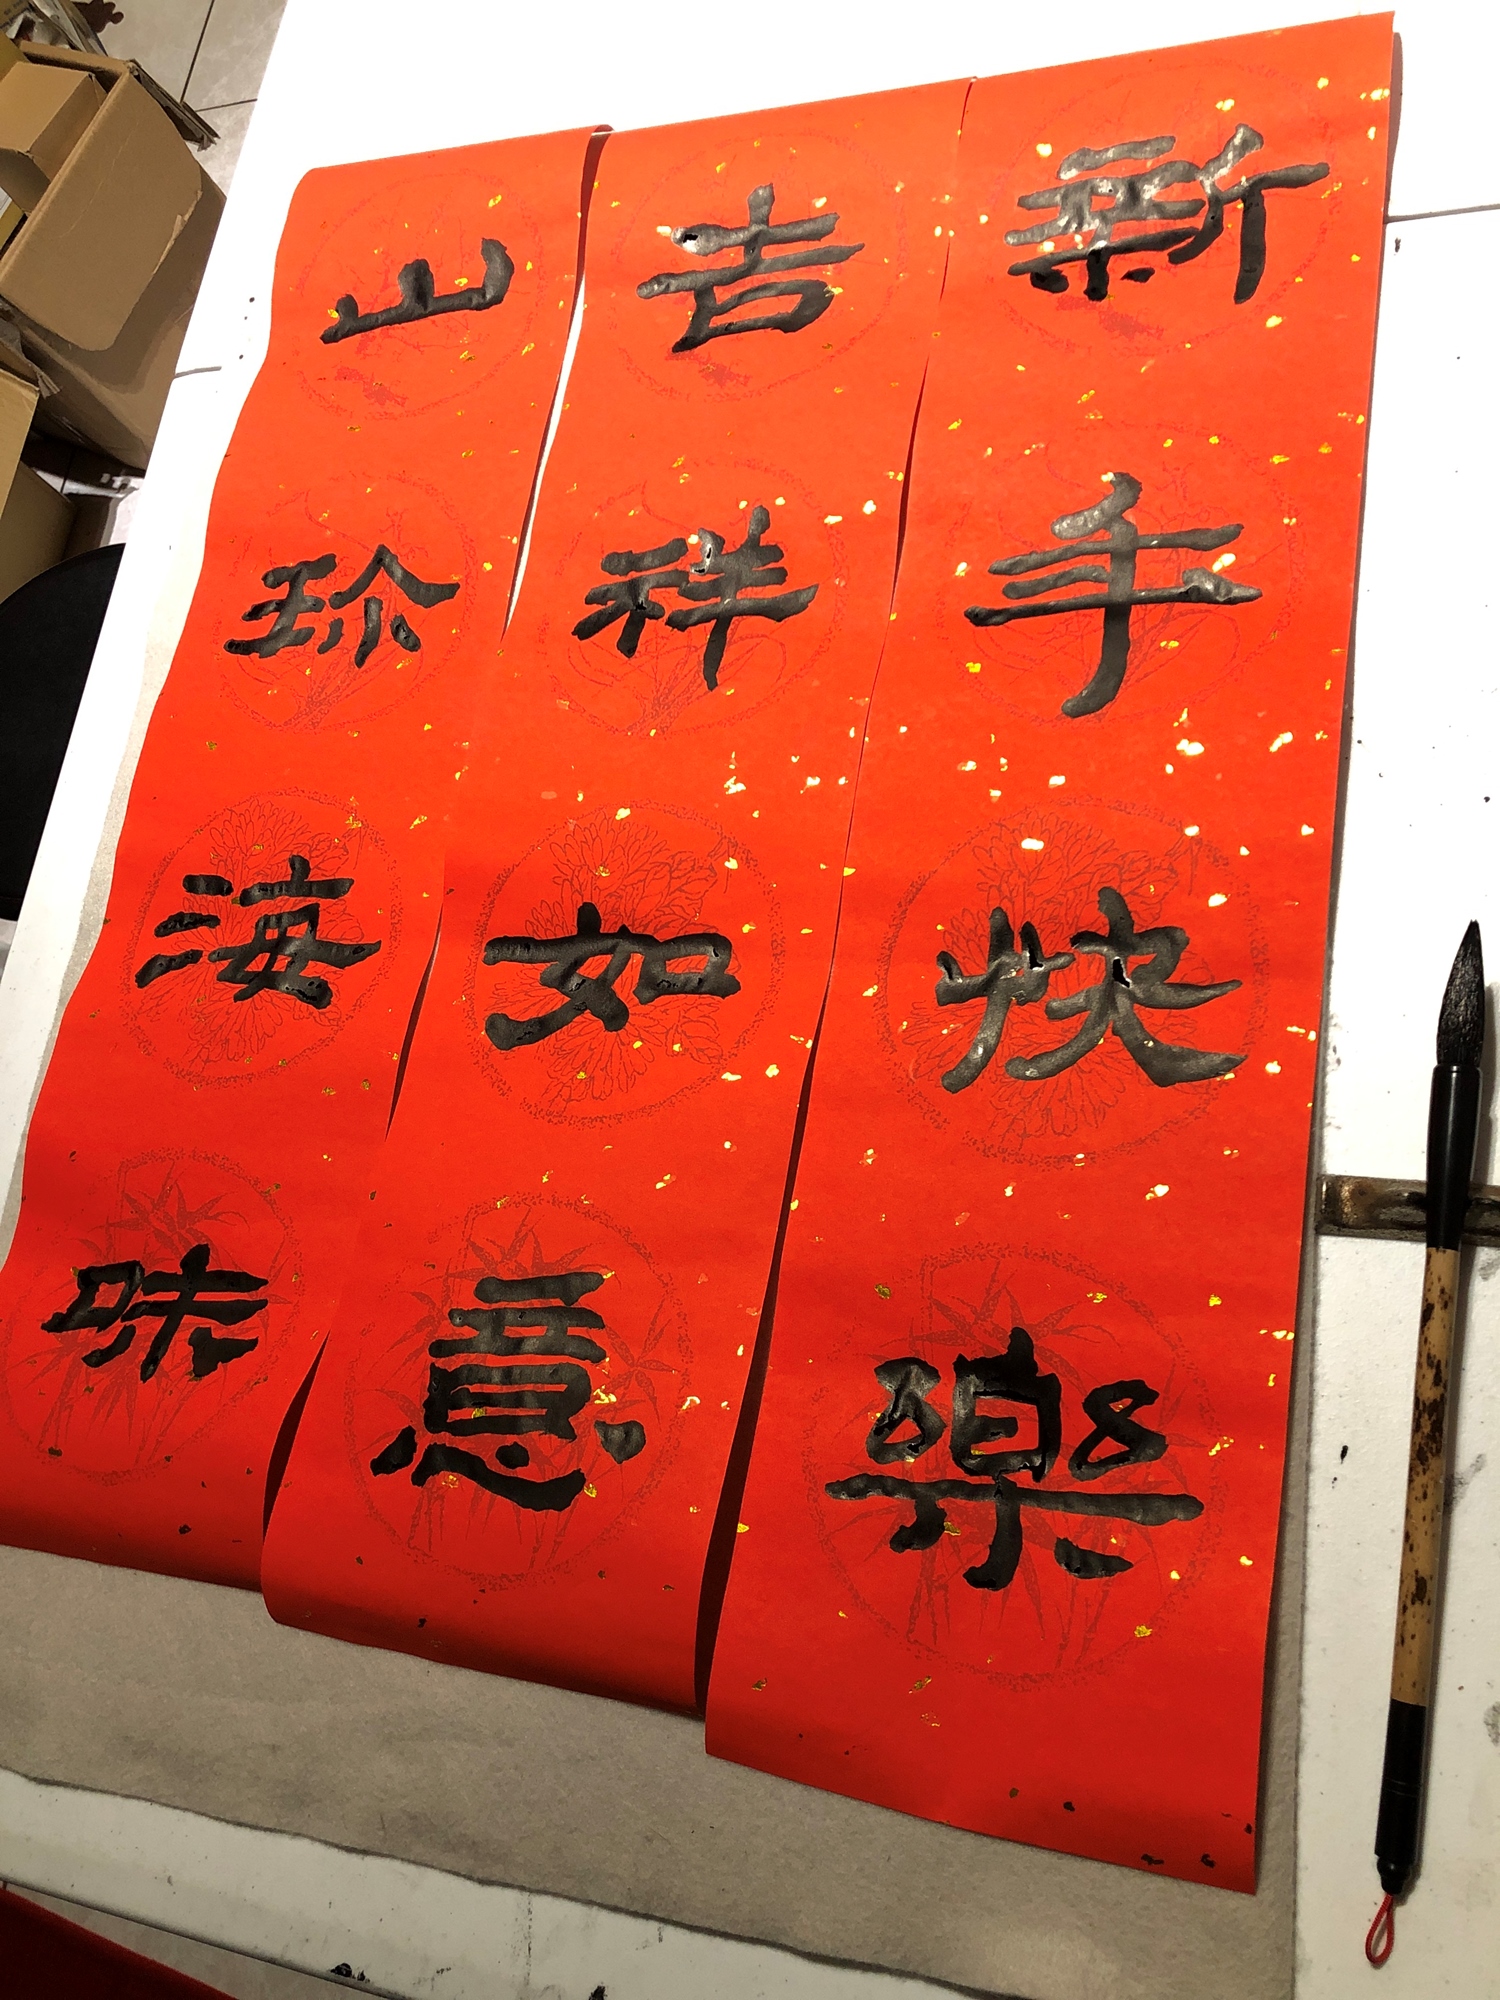 新年快樂
吉祥如意
山珍海味